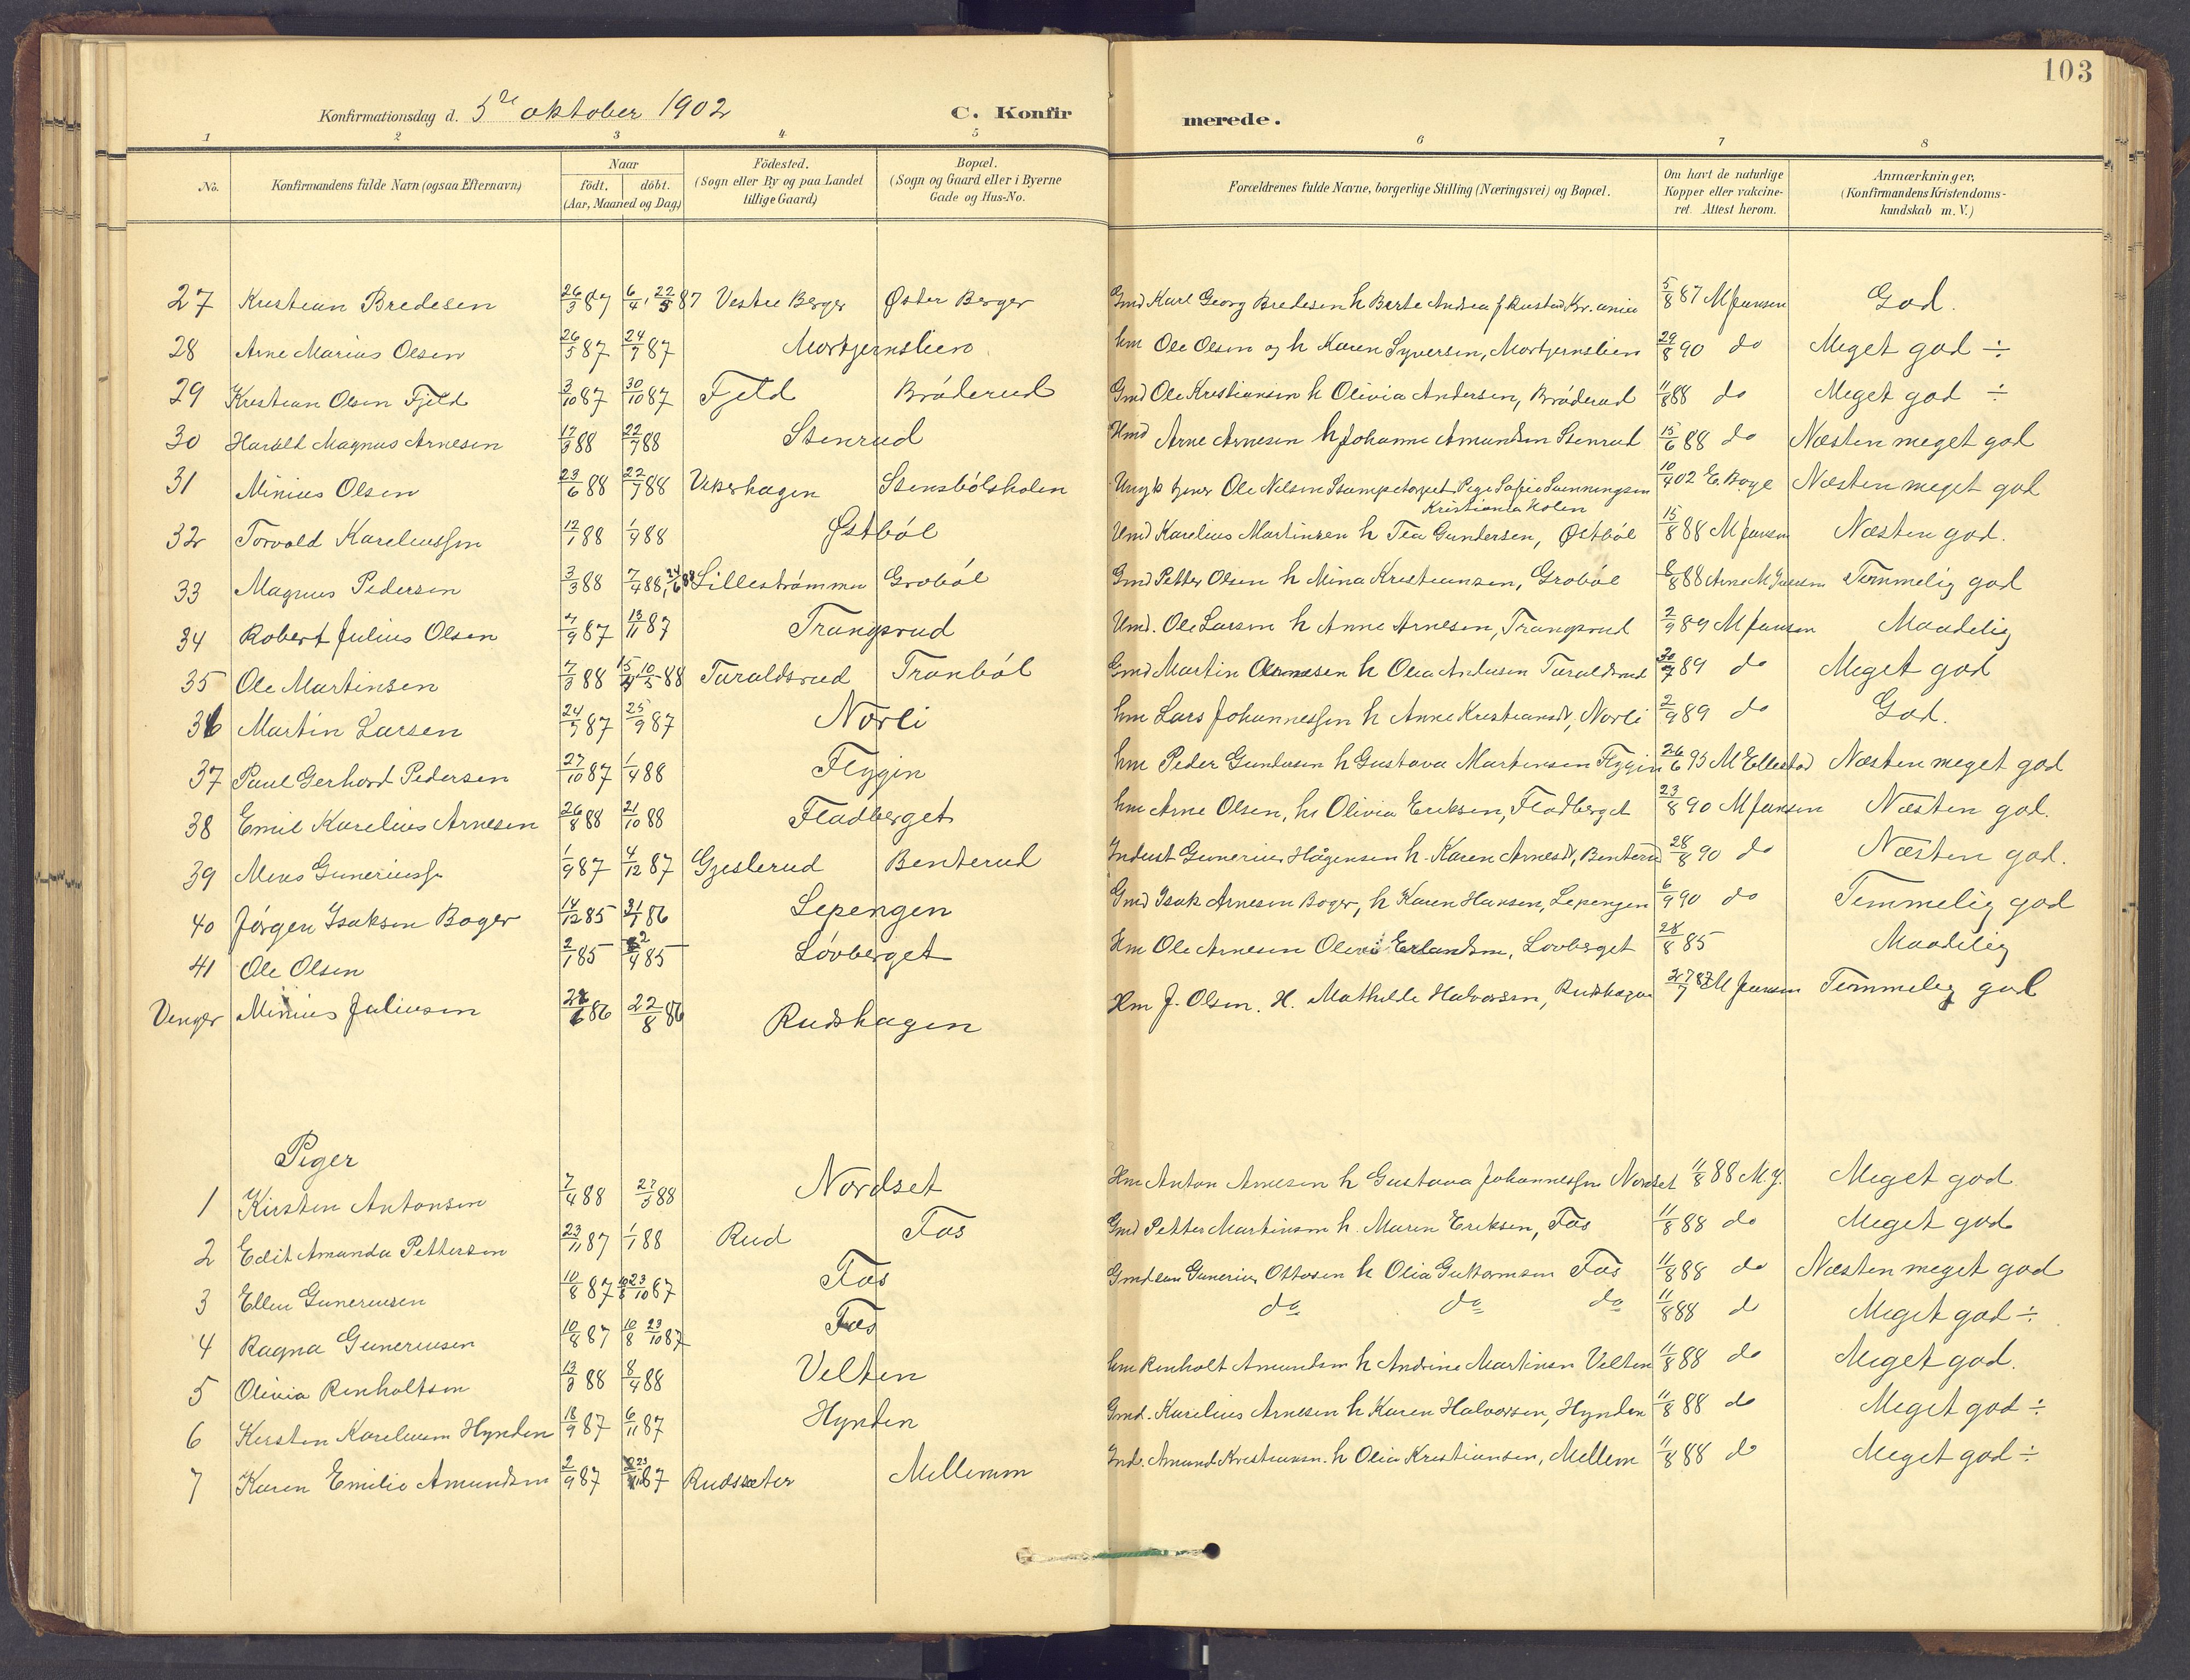 103
Konfirmationsdag d. 5te oktober 1902 C. Konfir merede.
1 2 3 4 5 6 7 8
No. Konfirmandens fulde Navn (ogsaa Efternavn) Naar födt. döbt. (Aar, Maaned og Dag) Födested. (Sogn eller By og paa Landet tillige Gaard) Bopæl. (Sogn og Gaard eller i Byerne Gade og Hus-No. Forældrenes fulde Navne, borgerlige Stilling (Næringsvei) og Bopæl. Om havt de naturlige Kopper eller vakcineret. Attest herom. Anmærkninger, (Konfirmandens Kristendomskundskab m. V.)
27 Kristian Bredesen 26/3 87 6/4, 22/5 87 Vestre Berger Øster Berger Gmd Karl Georg Bredesen h Berte Andrea 5/8 87 M Jensen God.
28 Arne Marius Olsen 26/5 87 24/7 87 Mortjernslien hm Ole Olsen og h Karen Syversen, Mortjernslien 29/8 90 do Meget god ÷
29 Kristian Olsen Fjeld 3/10 87 30/10 87 Fjeld Bröderud Gmd Ole Kristiansen h Olivia Andersen, Bröderud 11/8 88 do Meget god ÷
30 Harald Magnus Arnesen 17/3 88 22/7 88 Stenrud Hmd Arne Arnesen h Johanne Amundsen Stenrud 15/6 88 do Næsten meget god
31 Minius Olsen 23/6 88 22/7 88 Vikerhagen Stensbölsholen Ungk tjener Ole Nilsen Stampetorpet Pige Sofie Svenningsen 10/4 02 E. Boye Næsten meget god
Kristiania Kolen
32 Torvald Kareliussen 12/1 88 1/4 88 Østböl Gmd Karelius Martinsen h Tea Gundersen, Østböl 15/8 88 M Jensen Næsten god.
33 Magnus Pedersen 3/3 88 7/4 88, 24/6 88 Lilleströmmen Groböl Gmd Petter Olsen h Mina Kristiansen, Groböl 8/8 88 Arne M Jensen Temmelig god
34 Robert Julius Olsen 7/9 87 13/11 87 Trangsrud Gmd. Ole Larsen h Anne Arnesen, Trangsrud 2/9 89 M Jensen Maadelig
35 Ole Martinsen 7/3 88 15/4, 10/5 88 Taraldsrud Tranböl Gmd Martin h Olea Andersen Taraldsrud 30/7 89 do Meget god
36 Martin Larsen 24/5 87 25/9 87 Norli hm Lars Johannessen h Anne Kristiansdr, Norli 2/9 89 do God.
37 Paul Gerhard Pedersen 27/10 87 1/4 88 Flyjin hm Peder Gundersen h Gustava Martinsen Flyjin 26/6 93 M Ellestad Næsten meget god
38 Emil Karelius Arnesen 26/8 88 21/10 88 Fladberget hm Arne Olsen, h Olivia Eriksen, Fladberget 23/8 90 M Jensen Næsten god.
39 Mens Gunerius 1/9 87 4/12 87 Gjeslerud Benterud Indust Gunerius Hågensen h. Karen Arnesdr, Benterud 28/8 90 do Næsten god.
40 Jörgen Isaksen Boger 14/12 85 31/1 86 Lepengen Gmd Isak Arnesen Boger, h Karen Hansen, Lepengen 6/9 90 do Temmelig god
41 Ole Olsen 2/1 85 2/4 85 Lövberget Hm Ole Arnesen Olivi Erlandsen, Lövberget 28/8 85 Maadelig
Venger Minius Juliusen 28/6 86 22/8 86 Rudshagen Hm J. Olsen. H. Mathilde Halvorsen, Rudshagen 27/7 87 M Jensen Temmelig god
Piger
1 Kirsten Antonsen 7/4 88 27/5 88 Nordset Hm Anton Arnesen h Gustava Johannessen Nordset 11/8 88 M.J. Meget god
2 Edit Amanda Pettersen 23/11 87 1/1 88 Rud Fas Gmd Petter Martinsen h. Maren Eriksen, Fas 11/8 88 do Meget god
3 Ellen Gunerusen 10/8 87 10/8 23/10 87 Fas Gmd Gunerius Ottosen h Olia Guttormsen Fas 11/8 88 do Næsten meget god
4 Ragna Gunerusen 10/8 87 10/8 23/10 87 Fas do do do 11/8 88 do Meget god ÷
5 Olivia Renholtsen 13/3 88 8/4 88 Velten hm Renholt Amundsen h Andrine Martinsen Velten 11/8 88 do Meget god.
6 Kirsten Kareliusen Hynden 18/9 87 6/11 87 Hynden Gmd. Karelius Arnesen h Karen Halvorsen, Hynden 11/8 88 do Meget god ÷
7 Karen Emilie Amundsen 2/9 87 23/11 87 Rudsæter Mellemm Ind. Amund Kristiansen. h Olia Kristiansen, Mellem 11/8 88 do Meget god ÷